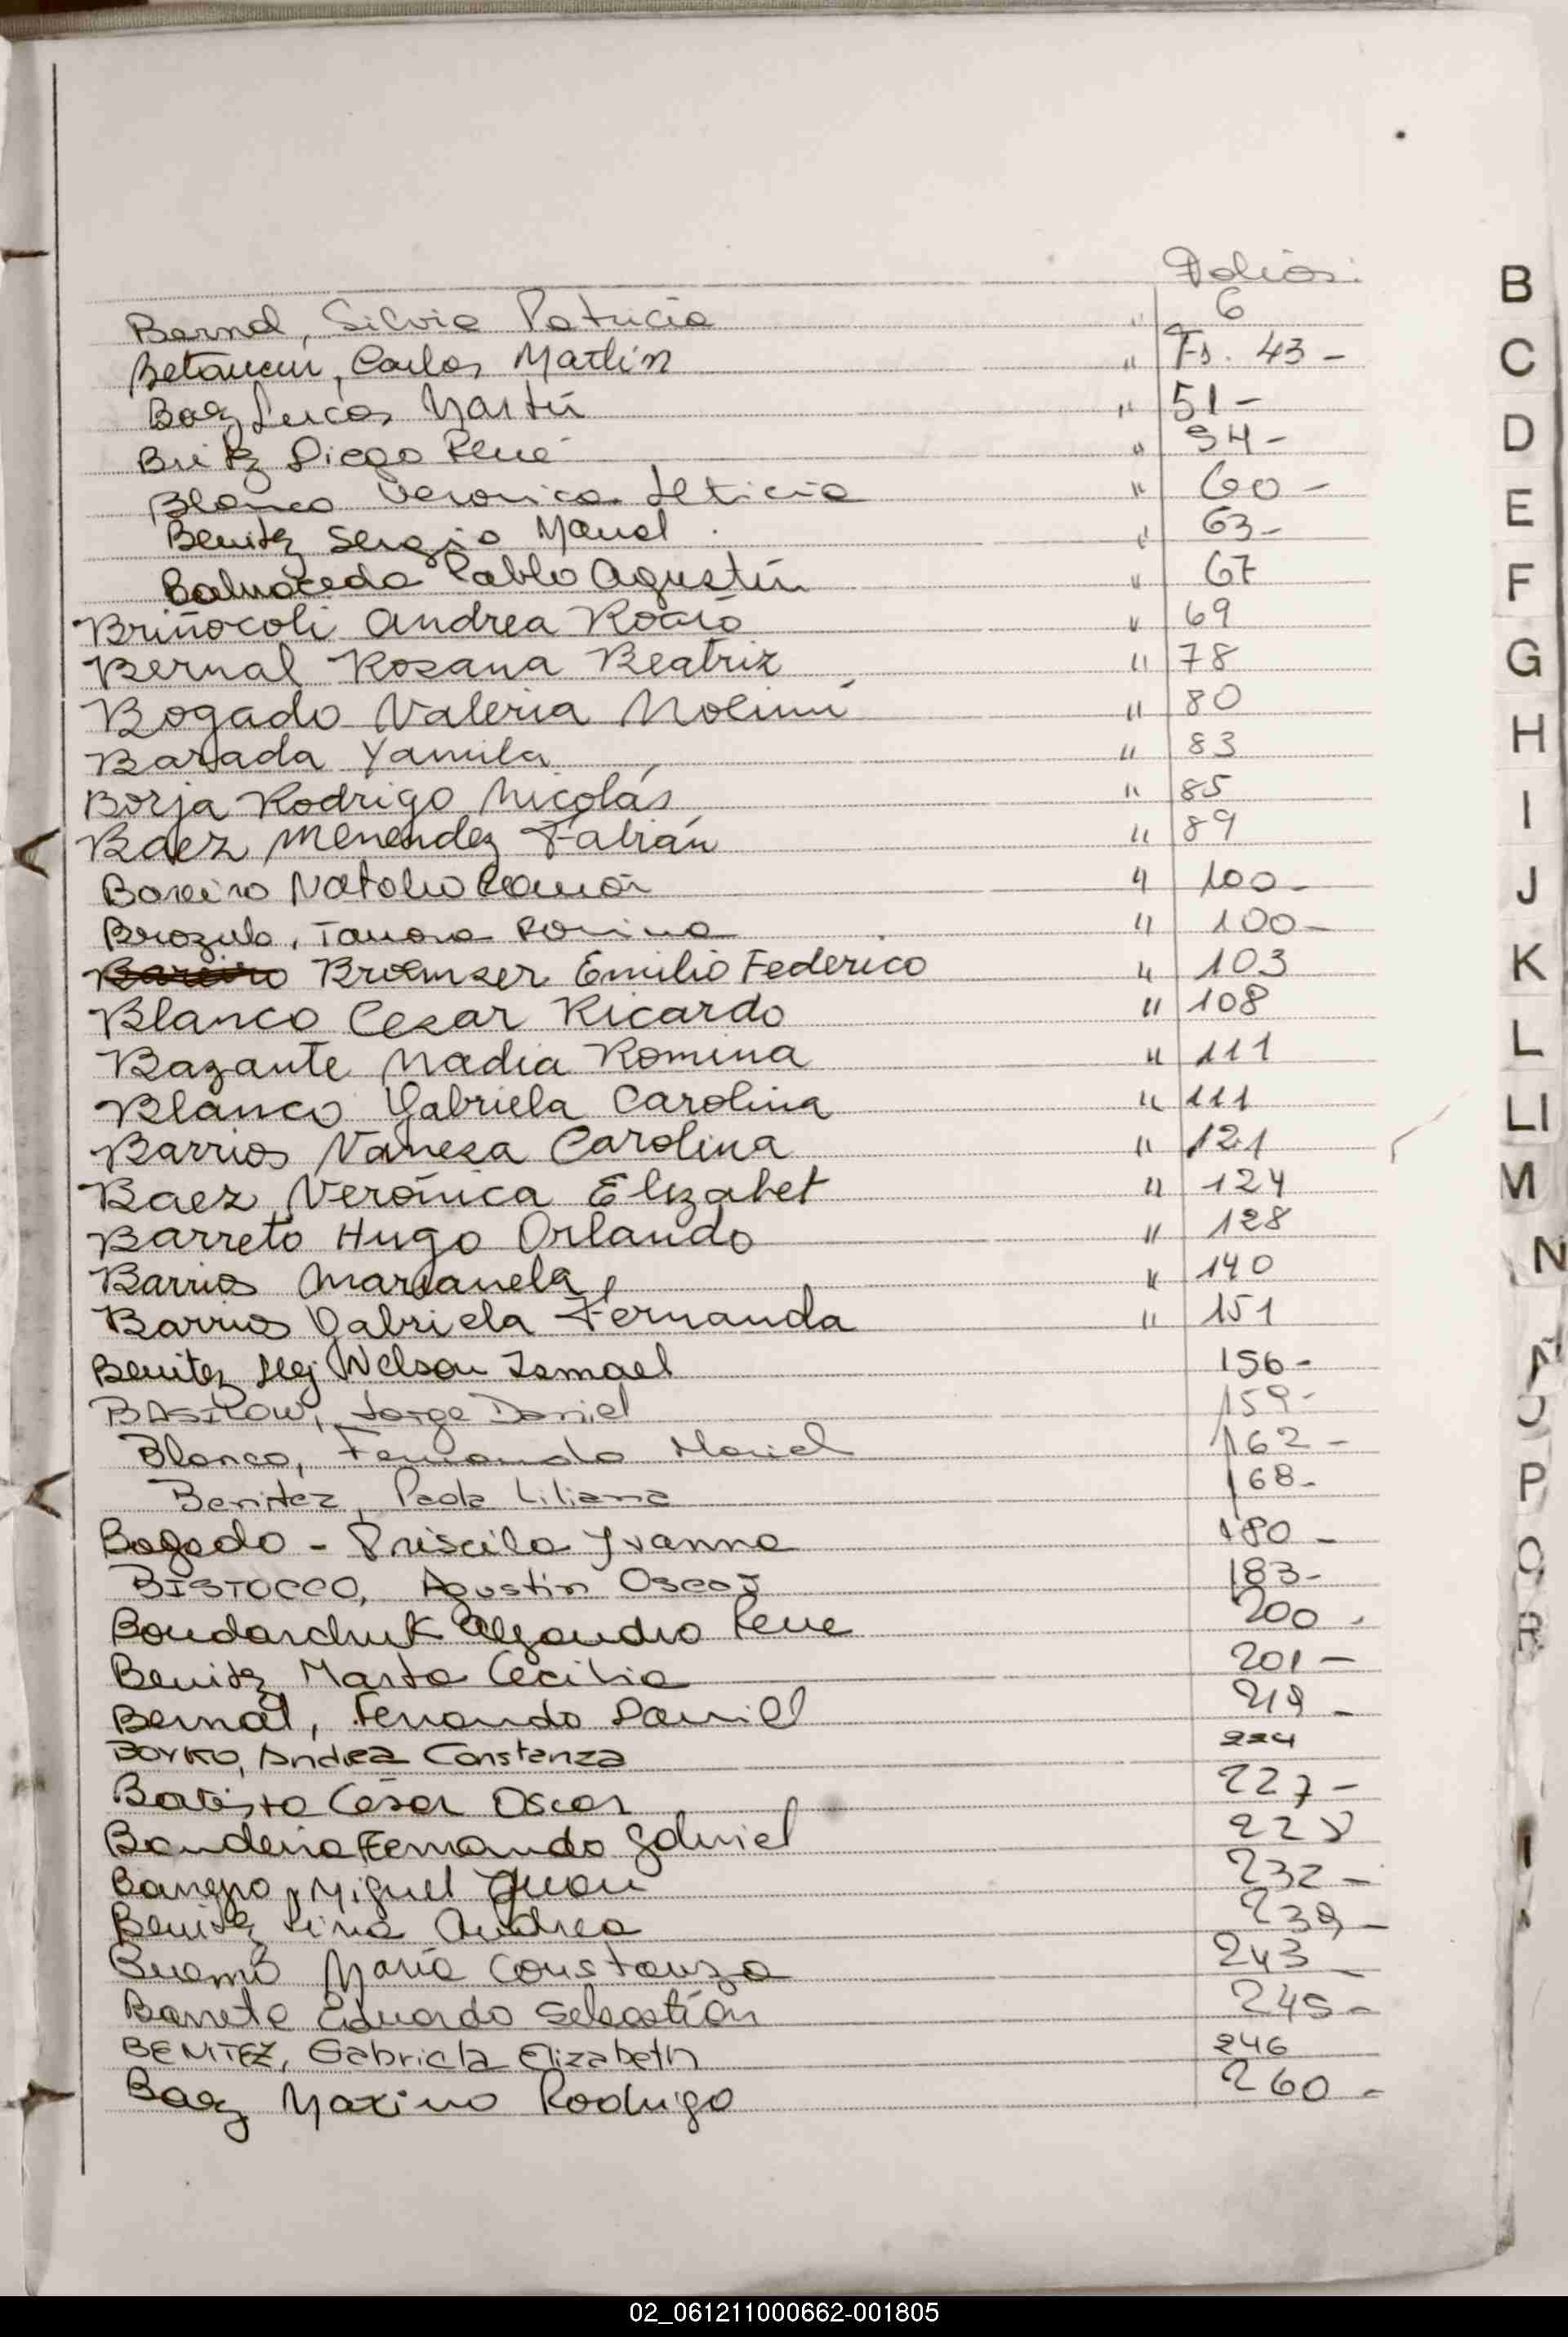 Folios:
Bernal, Silvia Patricia " 6
Betancur, Carlos Martín " Fs. 43 -
Baez Lucas Martín " 51 -
Britz Diego René " 54 -
Blanco Veronica Leticia " 60 -
Benitz Sergio Manuel " 63 -
Balmaceda Pablo Agustín " 67
Briñocoli Andrea Rocío " 69
Bernal Rosana Beatriz " 78
Bogado Valeria Noemí " 80
Barada Yamila " 83
Borja Rodrigo Nicolás " 85
Baez Menendez Fabián " 89
Bareiro Natalio Ramón " 100 -
Brozulo, Tamara Romina " 100 -
Broemser Emilio Federico " 103
Blanco Cesar Ricardo " 108
Bazante Nadia Romina " 111
Blanco Gabriela Carolina " 111
Barrios Vanesa Carolina " 121
Baez Verónica Elizabet " 124
Barreto Hugo Orlando " 128
Barrios Marianela " 140
Barrios Gabriela Fernanda " 151
Benitez Nelson Ismael 156 -
BASILOW, Jorge Daniel 159 -
Blanco, Fernando Mariel 162 -
Benitez, Paola Liliana 168 -
Bogado - Priscila Ivanna 180 -
BISTOCCO, Agustin Oscar 183 -
Bondarchuk Alejandro Rene 200 -
Benitz Marta Cecilia 201 -
Bernal, Fernando Daniel 219 -
BOYKO, Andrea Constanza 224
Batista César Oscar 227 -
Bandeira Fernando Gabriel 228
Miguel Juan 232 -
Benitz Lina Andrea 239 -
María Constanza 243 -
Barreto Eduardo Sebastián 245 -
BENITEZ, Gabriela Elizabeth 246
Baez Maximo Rodrigo 260 -
B
C
D
E
F
G
H
I
J
K
L
Ll
M
N
Ñ
O
P
Q
R
02_061211000662-001805